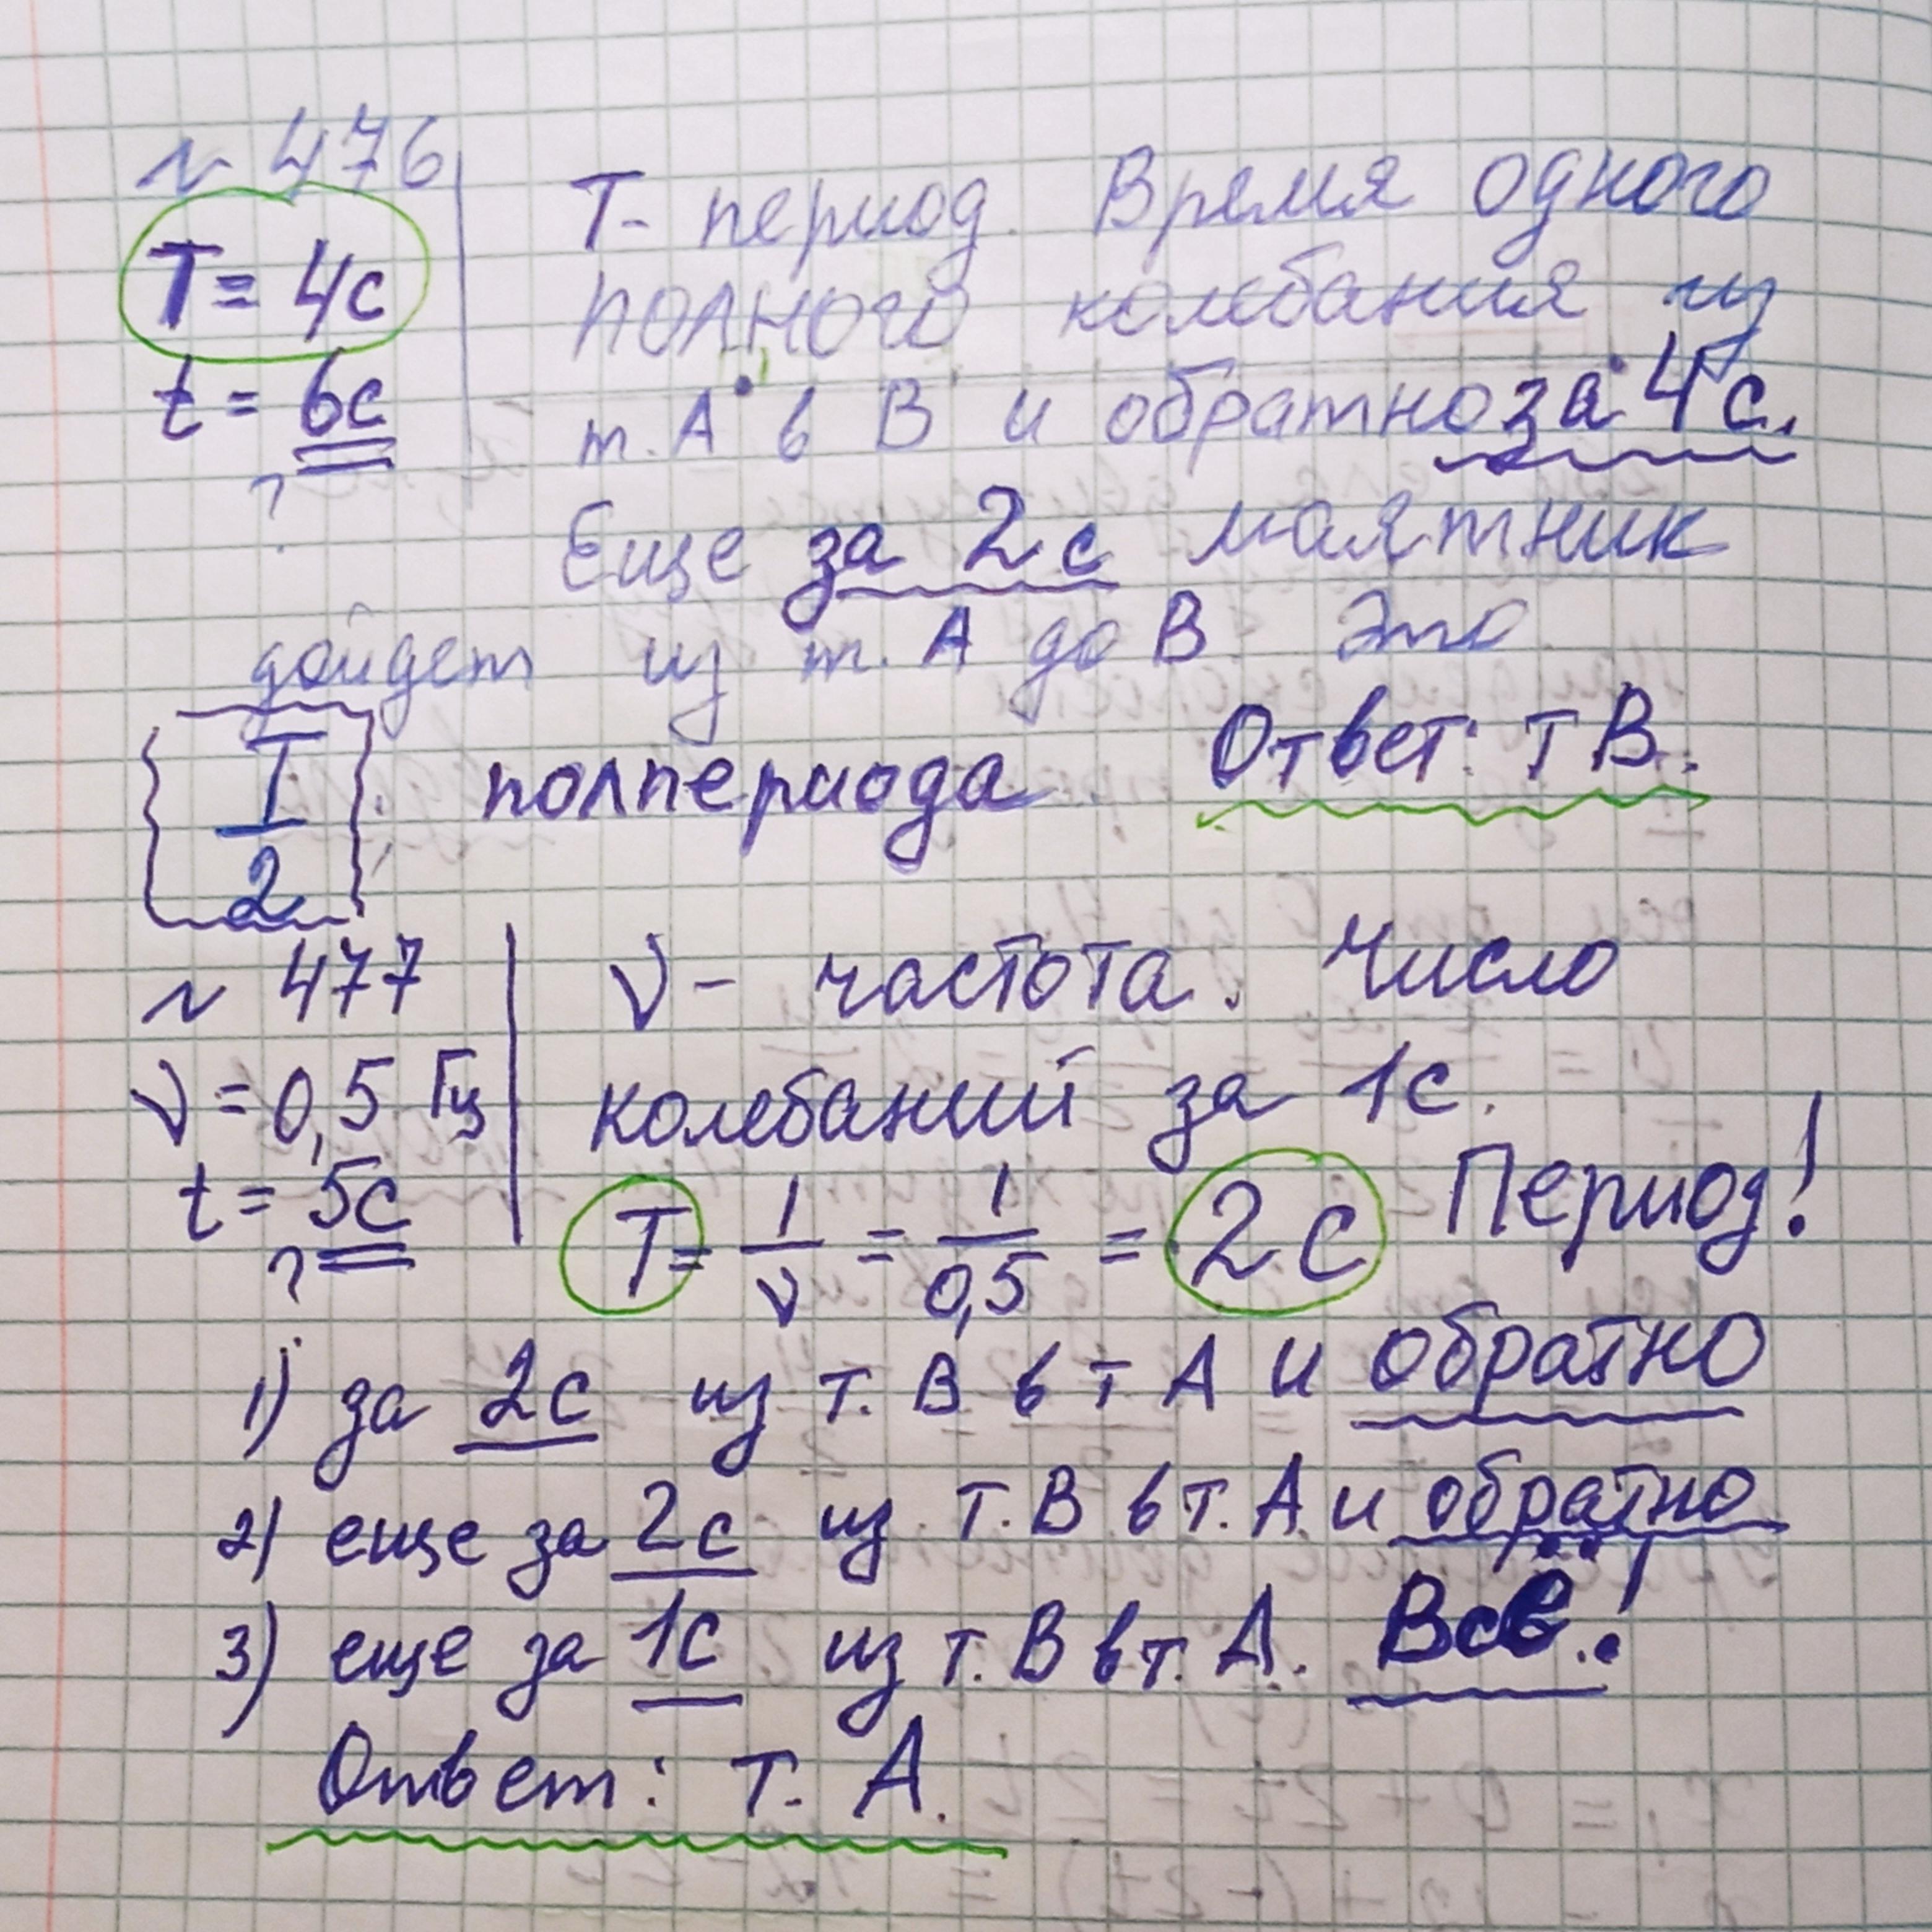 № 476
T = 4с
t = 6с
?
T - период. Время одного
полного колебания из
т. А в В и обратно за 4 с.
Еще за 2 с маятник
дойдет из т. А до В. Это
T/2 полпериода. Ответ: т В.
№ 477
ν = 0,5 Гц
t = 5с
?
ν - частота. Число
колебаний за 1с.
T = 1/ν = 1/0,5 = 2 с Период!
1) за 2с из т. В в т А и обратно
2) еще за 2с из т. В в т. А и обратно
3) еще за 1с из т. В в т. А. Всё!
Ответ: т. А.